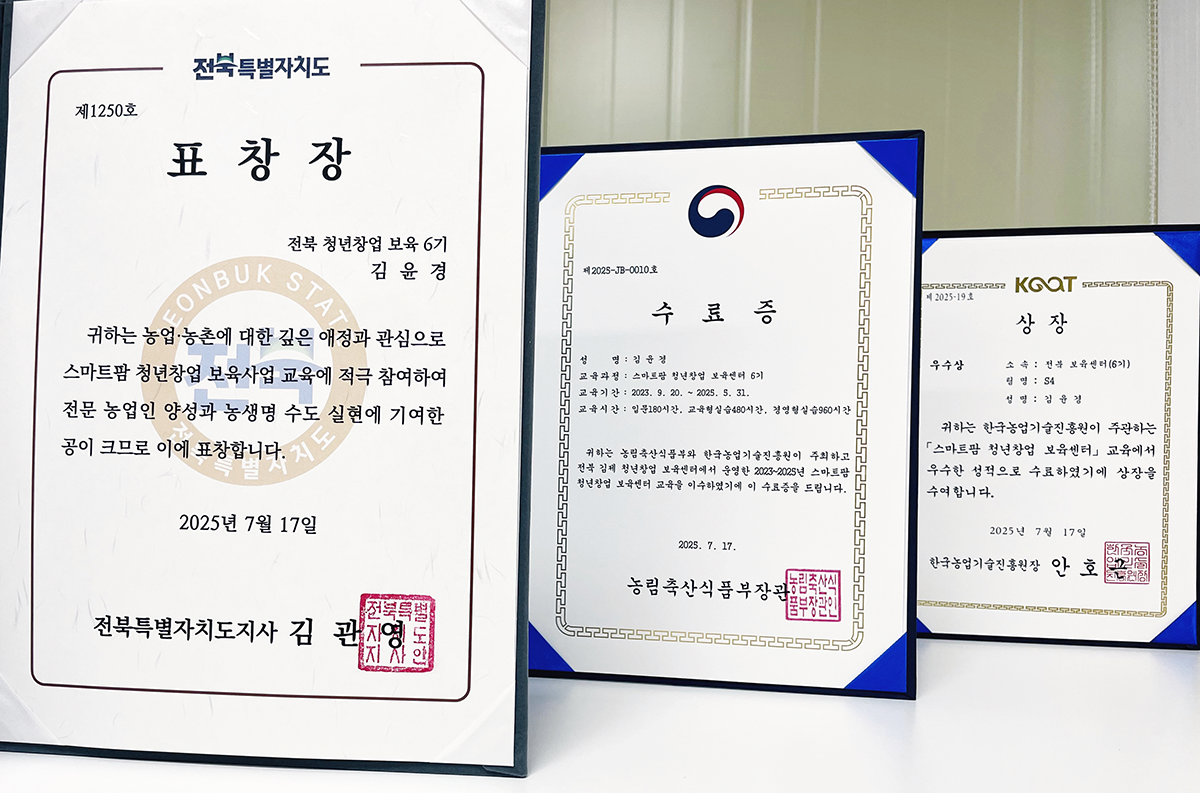 전북특별자치도
제1250호
표 창 장
전북 청년창업 보육 6기
김 윤 경
JEONBUK STATE
전북
전북특별자치도
귀하는 농업·농촌에 대한 깊은 애정과 관심으로
스마트팜 청년창업 보육사업 교육에 적극 참여하여
전문 농업인 양성과 농생명 수도 실현에 기여한
공이 크므로 이에 표창합니다.
2025년 7월 17일
전북특별자치도지사 김 관 영
전북특별
자치도
지사인
제2025-JB-0010호
수 료 증
성 명 : 김윤경
교육과정 : 스마트팜 청년창업 보육센터 6기
교육기간 : 2023. 9. 20. ~ 2025. 5. 31.
교육시간 : 입문180시간, 교육형실습480시간, 경영형실습960시간
귀하는 농림축산식품부와 한국농업기술진흥원이 주최하고
전북 김제 청년창업 보육센터에서 운영한 2023~2025년 스마트팜
청년창업 보육센터 교육을 이수하였기에 이 수료증을 드립니다.
2025. 7. 17.
농림축산식품부장관
농림축산식
품부장관인
KOAT
제 2025-19호
상 장
우수상
소 속 : 전북 보육센터(6기)
팀 명 : S4
성 명 : 김 윤 경
귀하는 한국농업기술진흥원이 주관하는
「스마트팜 청년창업 보육센터」 교육에서
우수한 성적으로 수료하였기에 상장을
수여합니다.
2025년 7월 17일
한국농업기술진흥원장 안 호 근